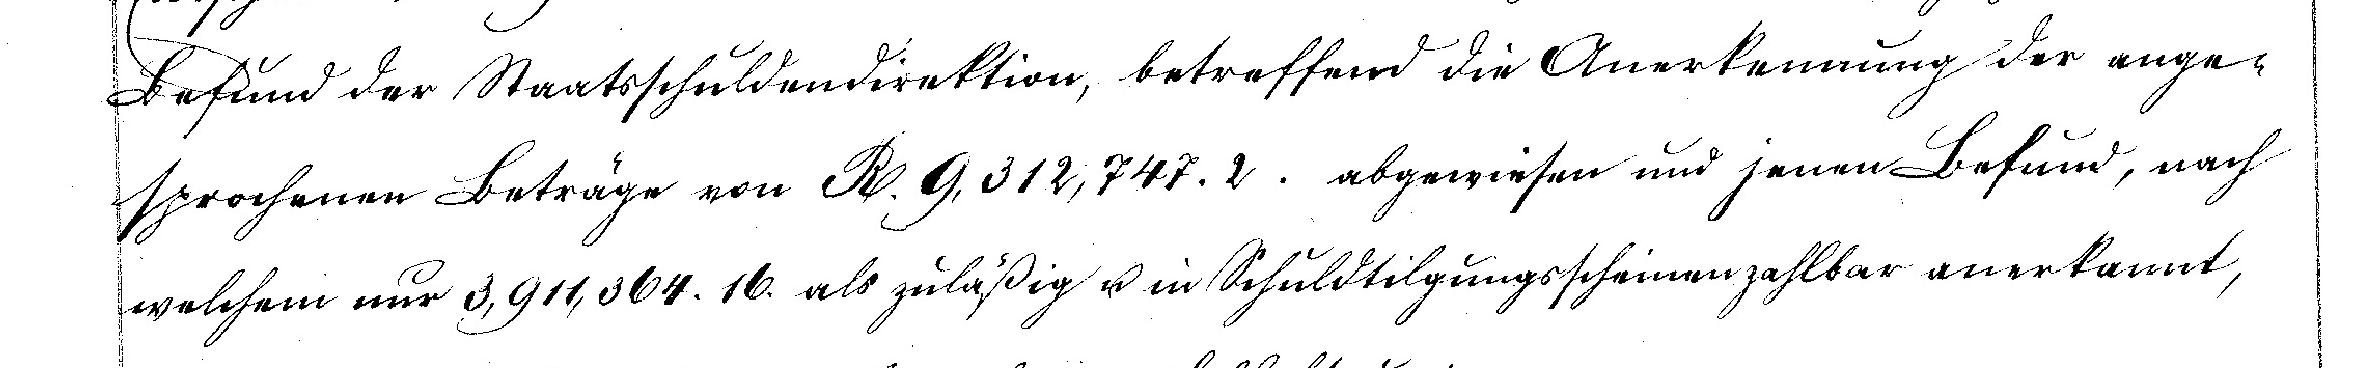 Befund der Staatsschuldendirektion, betreffend die Anerkennung der ange-
sprochenen Beträge von R. 9,312,747.2. abgewiesen und jenen Befund, nach
welchem nur 3,911,364.16. als zuläßig u in Schuldtilgungsscheinen zahlbar anerkannt,